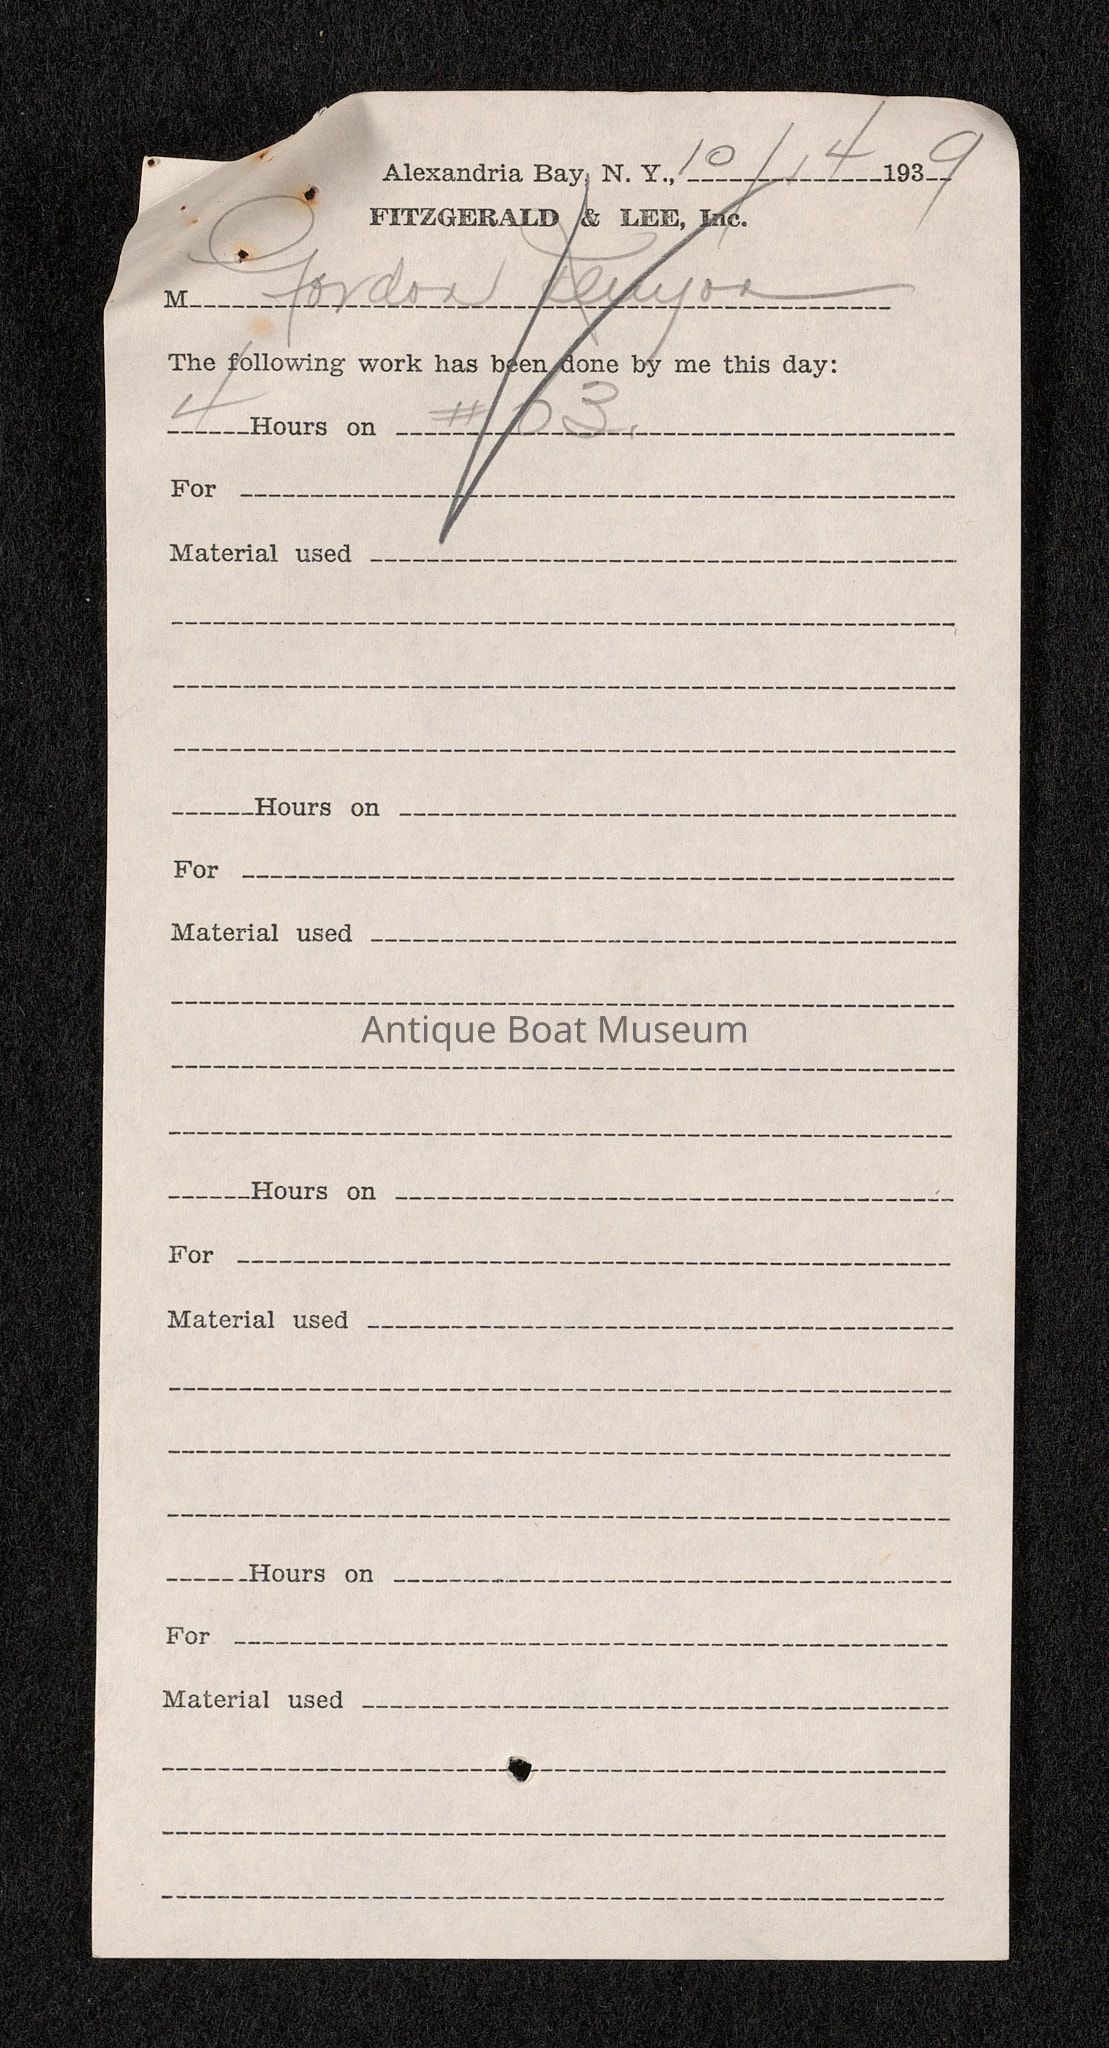 Alexandria Bay, N. Y., 10/14 1939
FITZGERALD & LEE, Inc.
M Gordon Kenyon
The following work has been done by me this day:
4 Hours on #03.
For
Material used
Hours on
For
Material used
Antique Boat Museum
Hours on
For
Material used
Hours on
For
Material used